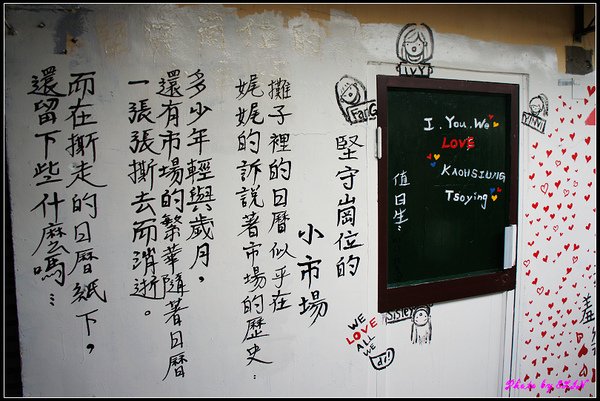 堅守崗位的
小市場
攤子裡的日曆似乎在
娓娓的訴說著市場的歷史…
多少年輕與歲月，
還有市場的繁華隨著日曆
一張張撕去而消逝。
而在撕走的日曆紙下，
還留下些什麼嗎…
IVY
I. You. We
LOVE
KAOHSIUNG
Tsoying
值日生:
Sister
WE
LOVE
ALL
WE
羞